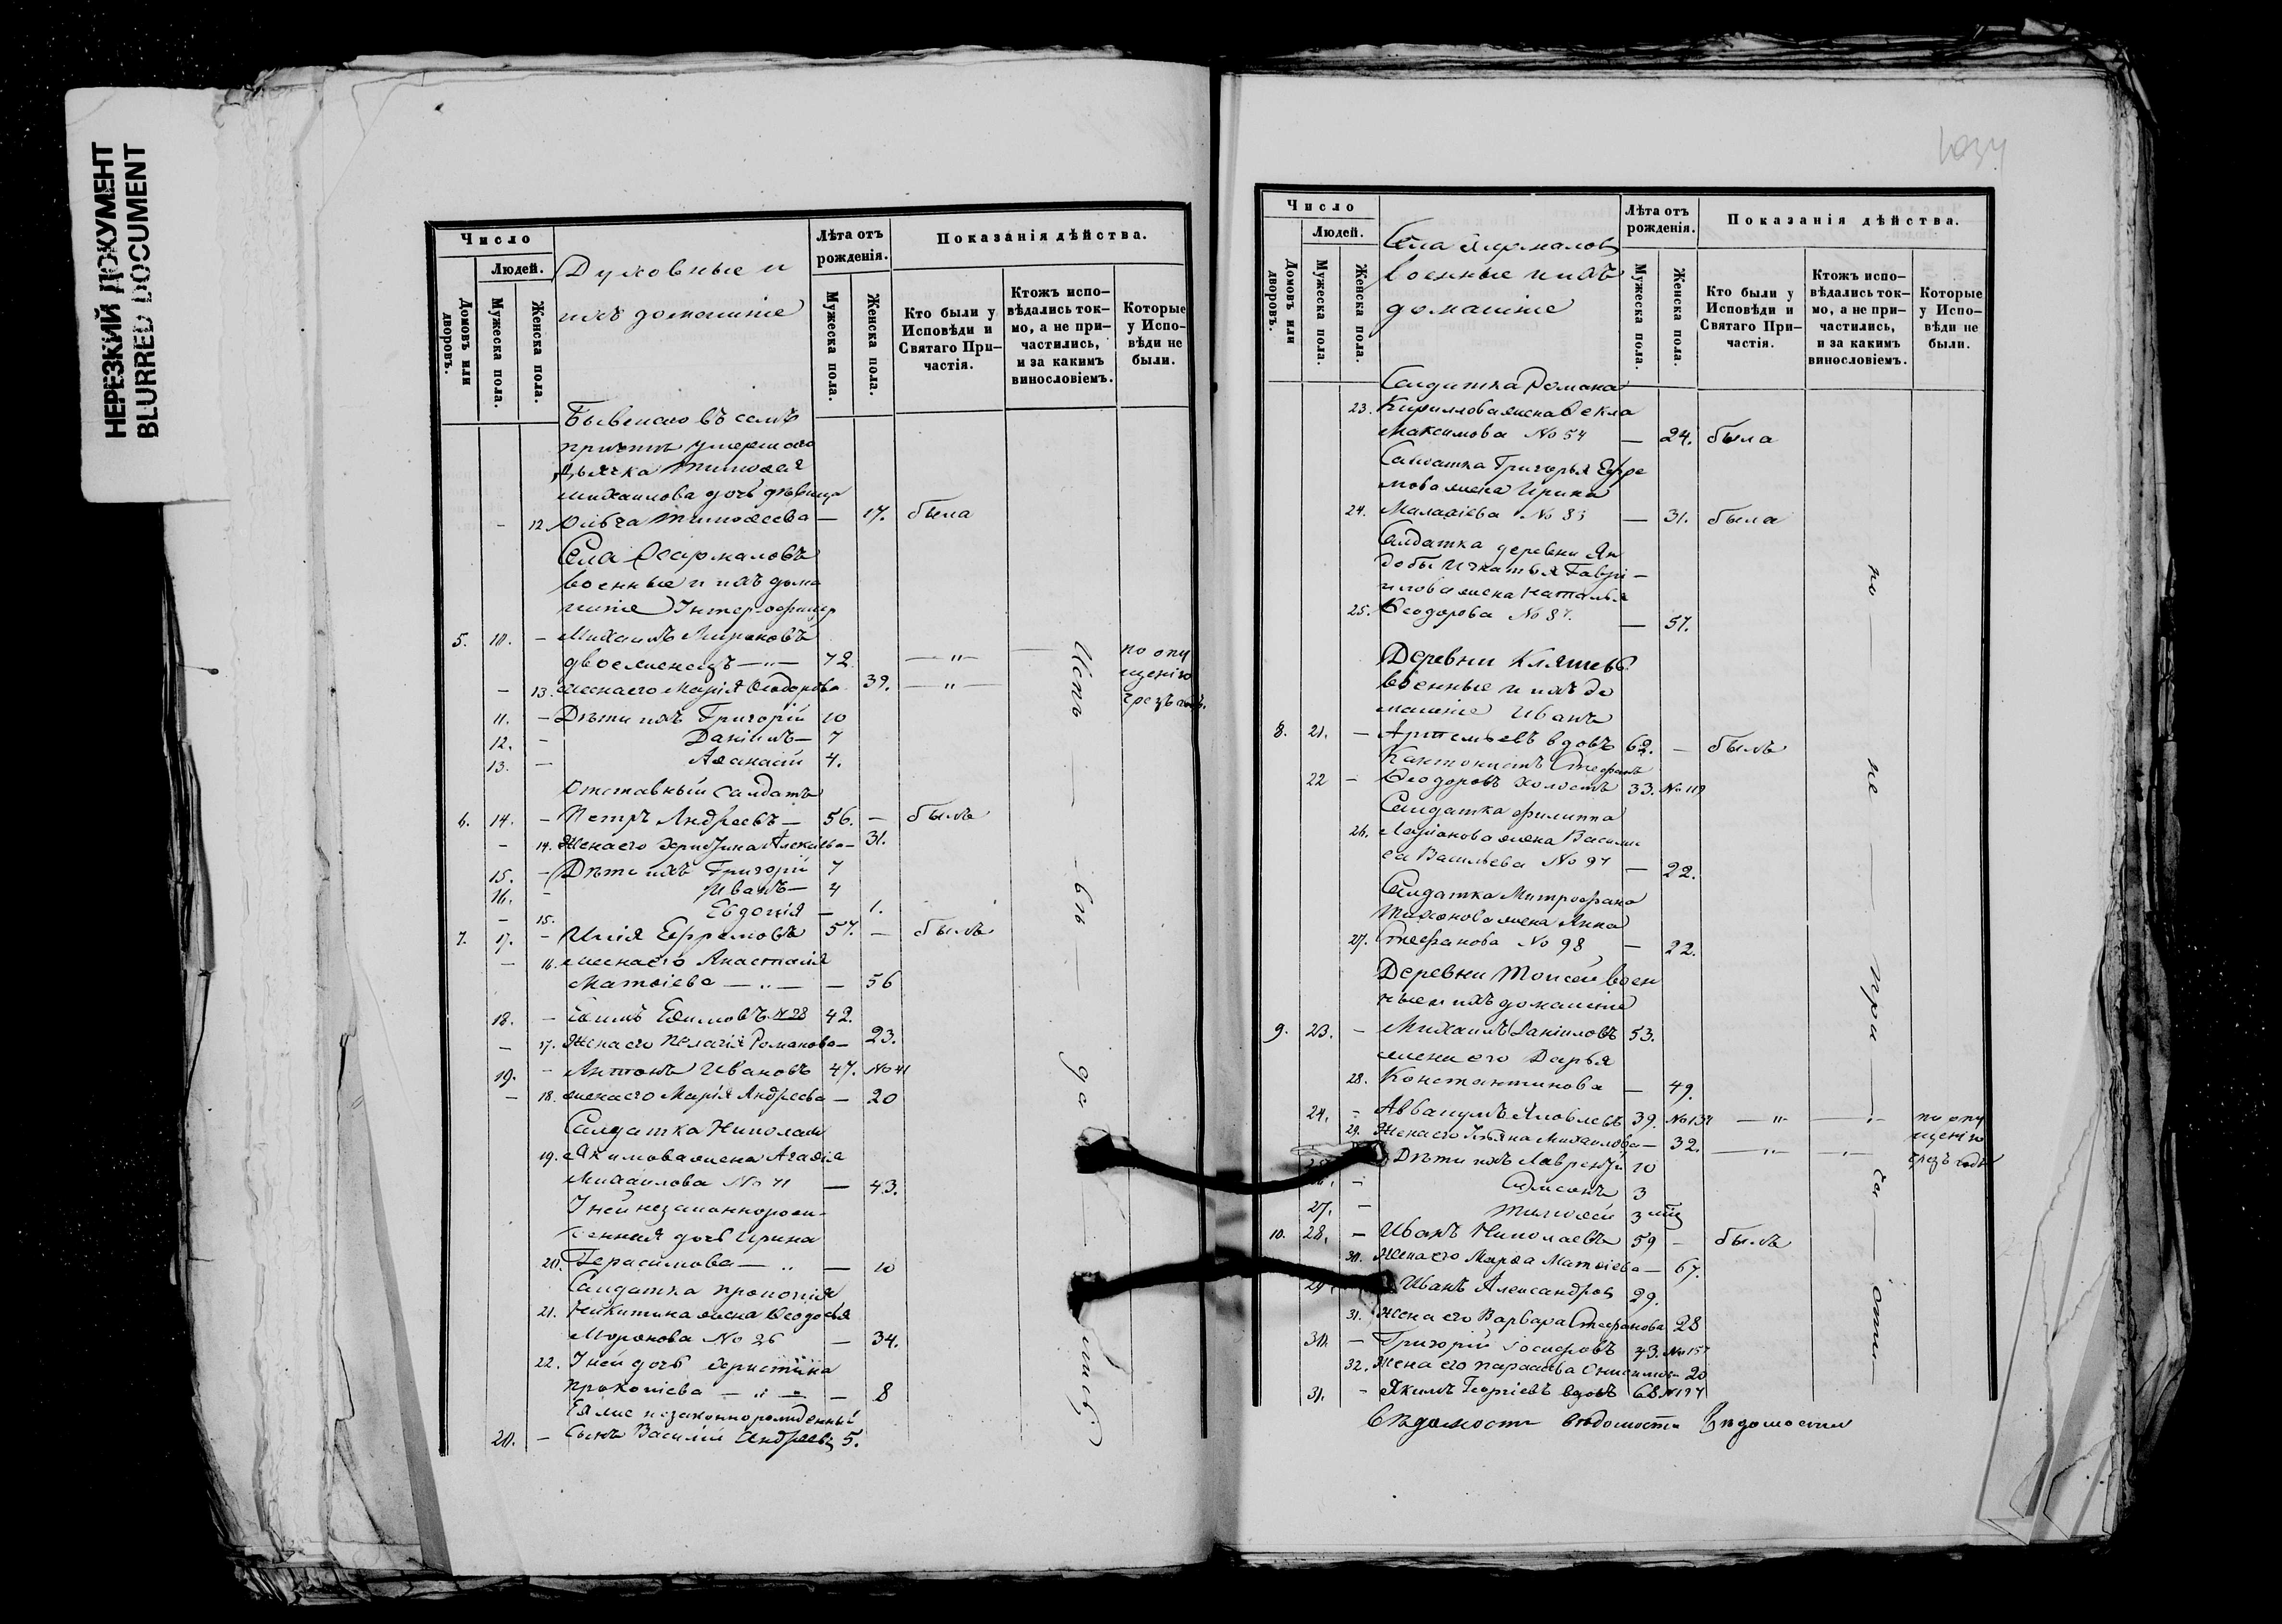 НЕРЕЗКИЙ ДОКУМЕНТ
BLURRED DOCUMENT
Число
Людей.
Домовъ или дворовъ.
Мужеска пола.
Женска пола.
Духовные и
ихъ домашніе
Лѣта отъ рожденія.
Мужеска пола.
Женска пола.
Показанія дѣйства.
Кто были у Исповѣди и Святаго При-частія.
Ктожъ испо-вѣдались ток-мо, а не при-частились, и за какимъ винословіемъ.
Которые у Испо-вѣди не были.
Бывшаго въ селѣ
причтѣ умершаго
Дьячка Тимоѳея
Михаилова дочь дѣвица
- 12. Тимоѳеева — 17. была
Села
военные и ихъ дома
шніе
5. 10. - Михаилъ Мироновъ
двоеженецъ — " — 72. — " — по опу
щенію
- 13. жена его Марія Ѳеодорова 39. — " —
11. - Дѣти ихъ Григорій 10
12. - Даніилъ — 7
13. - Аѳанасій 4.
Отставный салдатъ
6. 14. - Петръ Андреевъ — 56. — былъ
- 14. Жена его Христина Алексѣева — 31.
15. - Дѣти ихъ Григорій 7
16. - Иванъ — 4
- 15. Евдокія — 1.
7. 17. - Илія Ефремовъ 57. — былъ
- 16. жена его Анастасія
Матѳіева — " — — 56
18. - Ефимовъ № 28 42.
- 17. Жена его Пелагія Романова — 23.
19. - Антонъ Ивановъ 47. № 41
- 18. жена его Марія Андреева — 20
Салдатка Николая
19. Якимова жена Агаѳія
Михаилова № 41 — 43.
У ней незаконнорож-
денная дочь Ирина
20. Герасимова — " — 10
Салдатка Прокопія
21. Никитина жена Ѳеодосья
Миронова № 26 — 34.
22. У ней дочь Христина
Прокопіева — " — — 8
Ея же незаконнорожденный
20. - Сынъ Василій Андреевъ 5.
1034
Число
Людей.
Домовъ или дворовъ.
Мужеска пола.
Женска пола.
Села
военные и ихъ
домашніе
Лѣта отъ рожденія.
Мужеска пола.
Женска пола.
Показанія дѣйства.
Кто были у Исповѣди и Святаго При-частія.
Ктожъ испо-вѣдались ток-мо, а не при-частились, и за какимъ винословіемъ.
Которые у Испо-вѣди не были.
Салдатка Романа
23. Кириллова жена Ѳекла
Максимова № 54 — 24. была
Салдатка Григорья Ефре
мова жена Ирина
24. Малаѳіева — 31. была
Салдатка деревни Ян
добы Игнатья Гаврі-
илова жена Наталья
25. Ѳеодорова № 87. — 57.
Деревни
военные и ихъ до
машніе Иванъ
8. 21. - Артемьевъ вдовъ 62. — былъ
Кантонистъ Стефанъ
22 - Ѳеодоровъ холостъ 33. № 119
Салдатка Филиппа
26. Ларіонова жена Васили
са Васильева № 97 — 22.
Салдатка Митрофана
Тихонова жена Анна
27. Стефанова № 98 — 22.
Деревни Моисей воен
ные и ихъ домашніе
9. 23. - Михаилъ Даніиловъ 53.
жена его Дарья
28. Константинова — 49.
24. - Аввакумъ Яковлевъ 39. № 134 — " — — " — по опу
щенію
29. Жена его Ульяна Михаилова — 32. — " — — " — чрезъ годъ
Дѣти ихъ Лаврентій 10
- 3
27. - Тимоѳей 3
10. 28. - Иванъ Николаевъ 59 — былъ
30. Жена его Марѳа Матѳіева — 67.
29 Иванъ Александровъ 29.
31. Жена его Варвара Стефанова 28
30. - Григорій Іосифовъ 43. № 157
32. Жена его Параскева 20
31. - Якимъ Георгіевъ вдовъ 68.
по — не — при — ча — сти —
Вѣдомости вѣдомости Вѣдомостии